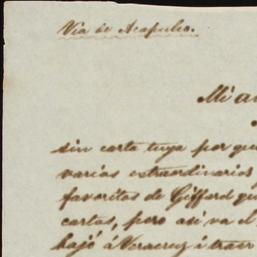 Via de Acapulco.
Mi a
sin carta tuya por que
varios extraordinarios
favoritos de Gifford qu
cartas, pero asi va el
bajó á Veracruz á traer